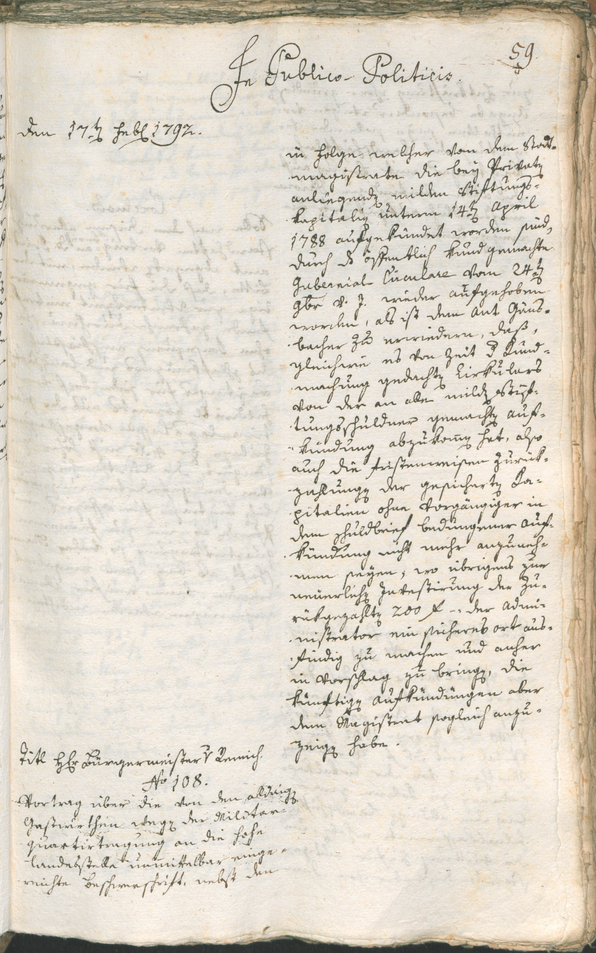 59.
In Publico-Politicis.
den 17ten Febr 1792.
in Folge welcher von dem Stadt-
magistrate die bey Privaten
anliegenden milden Stiftungs-
kapitalien unterm 14ten April
1788 aufgekündet worden sind,
durch das öffentlich kundgemachte
Gubernial Circulare vom 24ten
9br v. J. wieder aufgehoben
worden, als ist dem Amt Gäns-
bacher zu erwiedern, daß,
gleichwie es von Zeit der Kund-
machung gedachten Cirkulars
von der an alle milden Stif-
tungsschuldner gemachten Auf-
kündung abzukommen hat, also
auch die fristenweisen Zurück-
zahlungen der gesicherten Ka-
pitalien ohne vorgängiger in
dem Schuldbrief bedungener Auf-
kündung nicht mehr anzuneh-
men seyen; wo übrigens zur
neuerlichen Investirung der zu-
rükgezahlten 200 f der Admi-
nistrator ein sicheres Ort aus-
findig zu machen und anher
in Vorschlag zu bringen, die
künftigen Aufkündungen aber
dem Magistrat sogleich anzu-
zeigen habe.
Titl Hr Bürgermeister v Remich
No 108.
Vortrag über die von den
Gastwirthen wegen der Militar-
quartirtragung an die hohe
Landesstelle unmittelbar einge-
reichte Beschwerschrift, nebst den